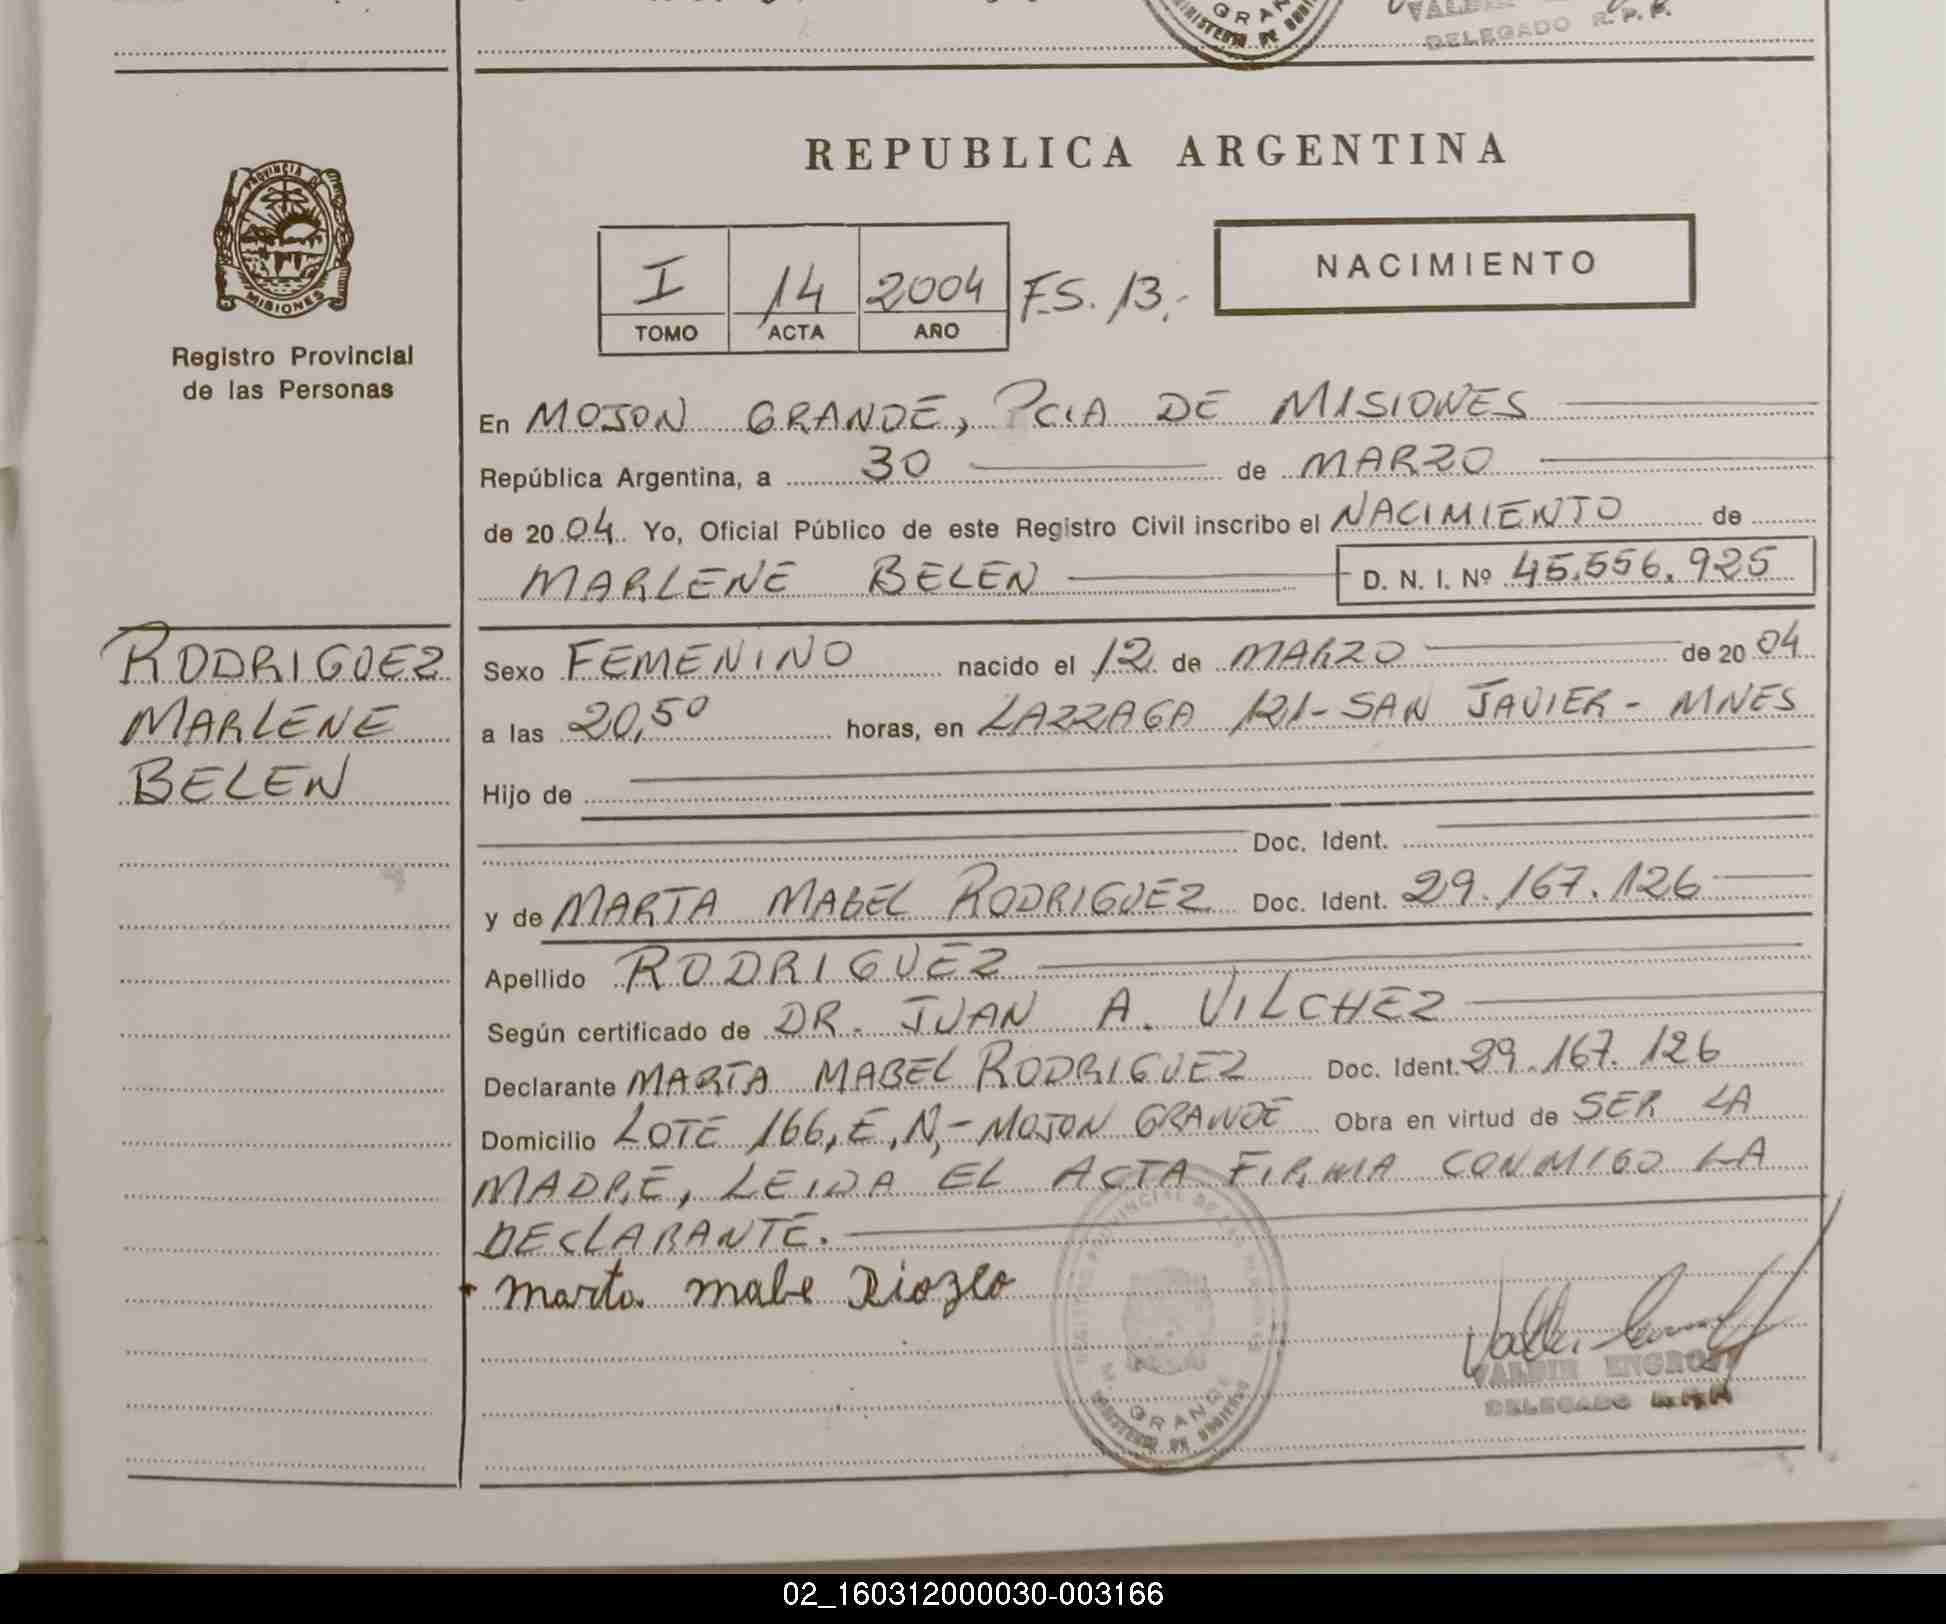 DELEGADO R. P. P.
GRAN
MINISTERIO DE
REPUBLICA ARGENTINA
PROVINCIA D
MISIONES
Registro Provincial
de las Personas
I 14 2004 FS. 13.-
TOMO ACTA AÑO
NACIMIENTO
En MOJON GRANDE, PCIA DE MISIONES
República Argentina, a 30 de MARZO
de 2004 Yo, Oficial Público de este Registro Civil inscribo el NACIMIENTO de
MARLENE BELEN D. N. I. Nº 45.556.925
RODRIGUEZ
MARLENE
BELEN
Sexo FEMENINO nacido el 12 de MARZO de 2004
a las 20,50 horas, en LAZZAGA 121-SAN JAVIER - MNES
Hijo de
Doc. Ident.
y de MARTA MABEL RODRIGUEZ Doc. Ident. 29.167.126
Apellido RODRIGUEZ
Según certificado de DR. JUAN A. VILCHEZ
Declarante MARTA MABEL RODRIGUEZ Doc. Ident. 29.167.126
Domicilio LOTE 166,E,N,- MOJON GRANDE Obra en virtud de SER LA
MADRE, LEIDA EL ACTA FIRMA CONMIGO LA
DECLARANTE.
marta mabe
M. GRANDE
MINISTERIO DE GOBIERNO
VALDIN
DELEGADO
02_160312000030-003166